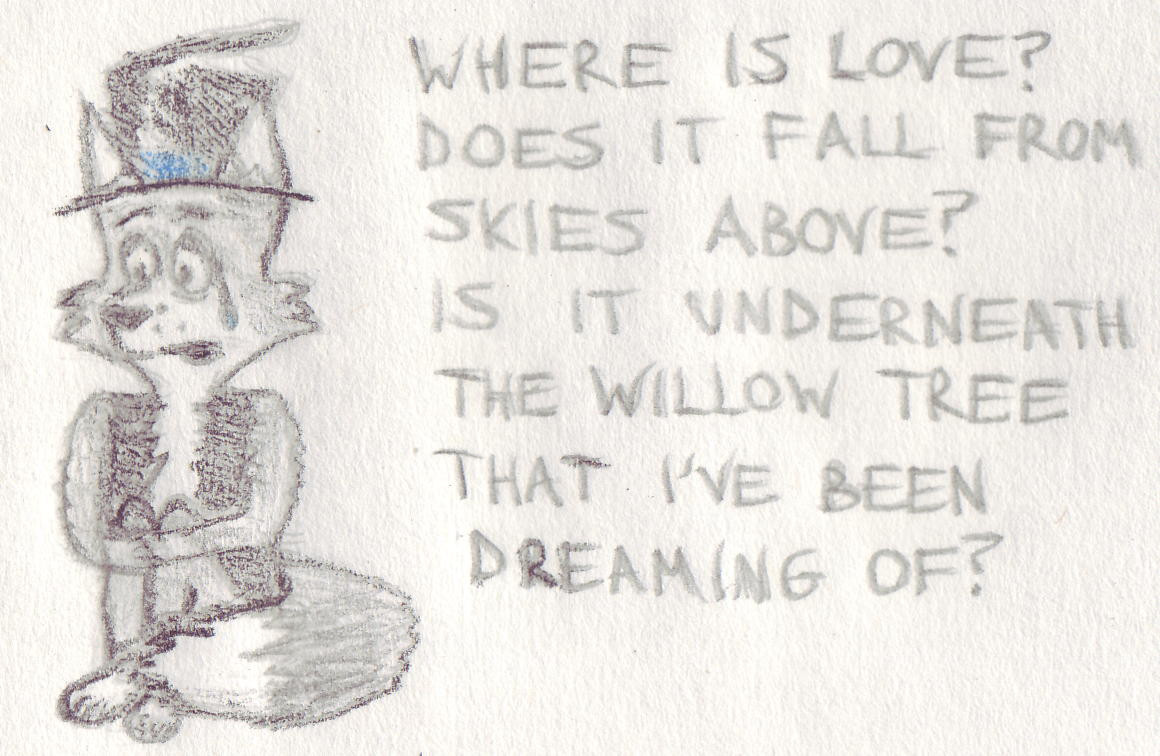 WHERE IS LOVE?
DOES IT FALL FROM
SKIES ABOVE?
IS IT UNDERNEATH
THE WILLOW TREE
THAT I'VE BEEN
DREAMING OF?